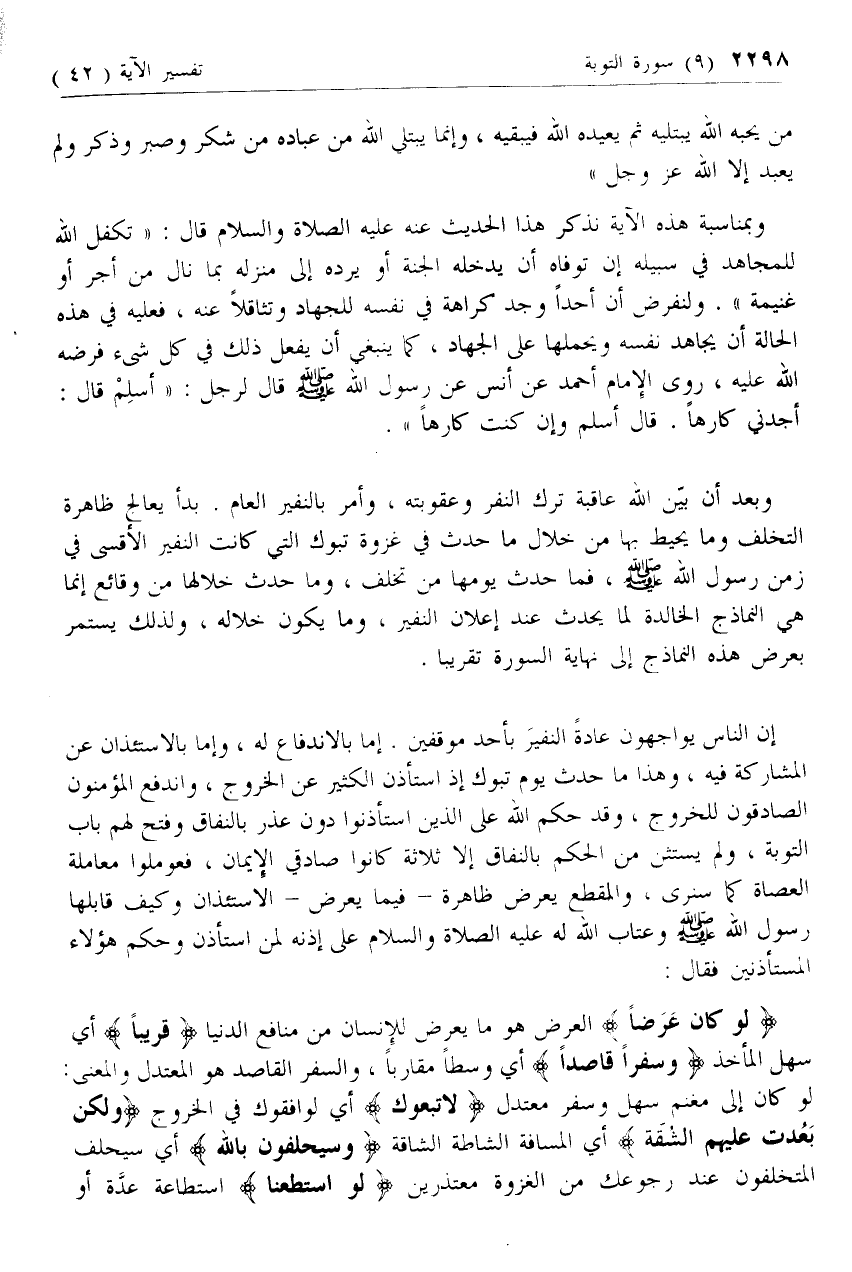 ٢٢٩٨ (٩) سورة التوبة تفسير الآية ( ٤٢ )
من يحبه الله يبتليه ثم يعيده الله فيبقيه ، وإنما يبتلي الله من عباده من شكر وصبر وذكر ولم
يعبد إلا الله عز وجل »
وبمناسبة هذه الآية نذكر هذا الحديث عنه عليه الصلاة والسلام قال : « تكفل الله
للمجاهد في سبيله إن توفاه أن يدخله الجنة أو يرده إلى منزله بما نال من أجر أو
غنيمة » . ولنفرض أن أحداً وجد كراهة في نفسه للجهاد وتثاقلاً عنه ، فعليه في هذه
الحالة أن يجاهد نفسه ويحملها على الجهاد ، كما ينبغي أن يفعل ذلك في كل شىء فرضه
الله عليه ، روى الإمام أحمد عن أنس عن رسول الله ﷺ قال لرجل : « أسلِمْ قال :
أجدني كارهاً . قال أسلم وإن كنت كارهاً » .
وبعد أن بيّن الله عاقبة ترك النفر وعقوبته ، وأمر بالنفير العام . بدأ يعالج ظاهرة
التخلف وما يحيط بها من خلال ما حدث في غزوة تبوك التي كانت النفير الأقسى في
زمن رسول الله ﷺ ، فما حدث يومها من تخلف ، وما حدث خلالها من وقائع إنما
هي النماذج الخالدة لما يحدث عند إعلان النفير ، وما يكون خلاله ، ولذلك يستمر
بعرض هذه النماذج إلى نهاية السورة تقريبا .
إن الناس يواجهون عادةً النفيرَ بأحد موقفين . إما بالاندفاع له ، وإما بالاستئذان عن
المشاركة فيه ، وهذا ما حدث يوم تبوك إذ استأذن الكثير عن الخروج ، واندفع المؤمنون
الصادقون للخروج ، وقد حكم الله على الذين استأذنوا دون عذر بالنفاق وفتح لهم باب
التوبة ، ولم يستثن من الحكم بالنفاق إلا ثلاثة كانوا صادقي الإيمان ، فعوملوا معاملة
العصاة كما سنرى ، والمقطع يعرض ظاهرة – فيما يعرض – الاستئذان وكيف قابلها
رسول الله ﷺ وعتاب الله له عليه الصلاة والسلام على إذنه لمن استأذن وحكم هؤلاء
المستأذنين فقال :
﴿ لو كان عَرَضاً ﴾ العرض هو ما يعرض للإنسان من منافع الدنيا ﴿ قريباً ﴾ أي
سهل المأخذ ﴿ وسفراً قاصداً ﴾ أي وسطاً مقارباً ، والسفر القاصد هو المعتدل والمعنى :
لو كان إلى مغنم سهل وسفر معتدل ﴿ لاتبعوك ﴾ أي لوافقوك في الخروج ﴿ولكن
بَعُدت عليهم الشُقَة ﴾ أي المسافة الشاطة الشاقة ﴿ وسيحلفون بالله ﴾ أي سيحلف
المتخلفون عند رجوعك من الغزوة معتذرين ﴿ لو استطعنا ﴾ استطاعة عدَّة أو